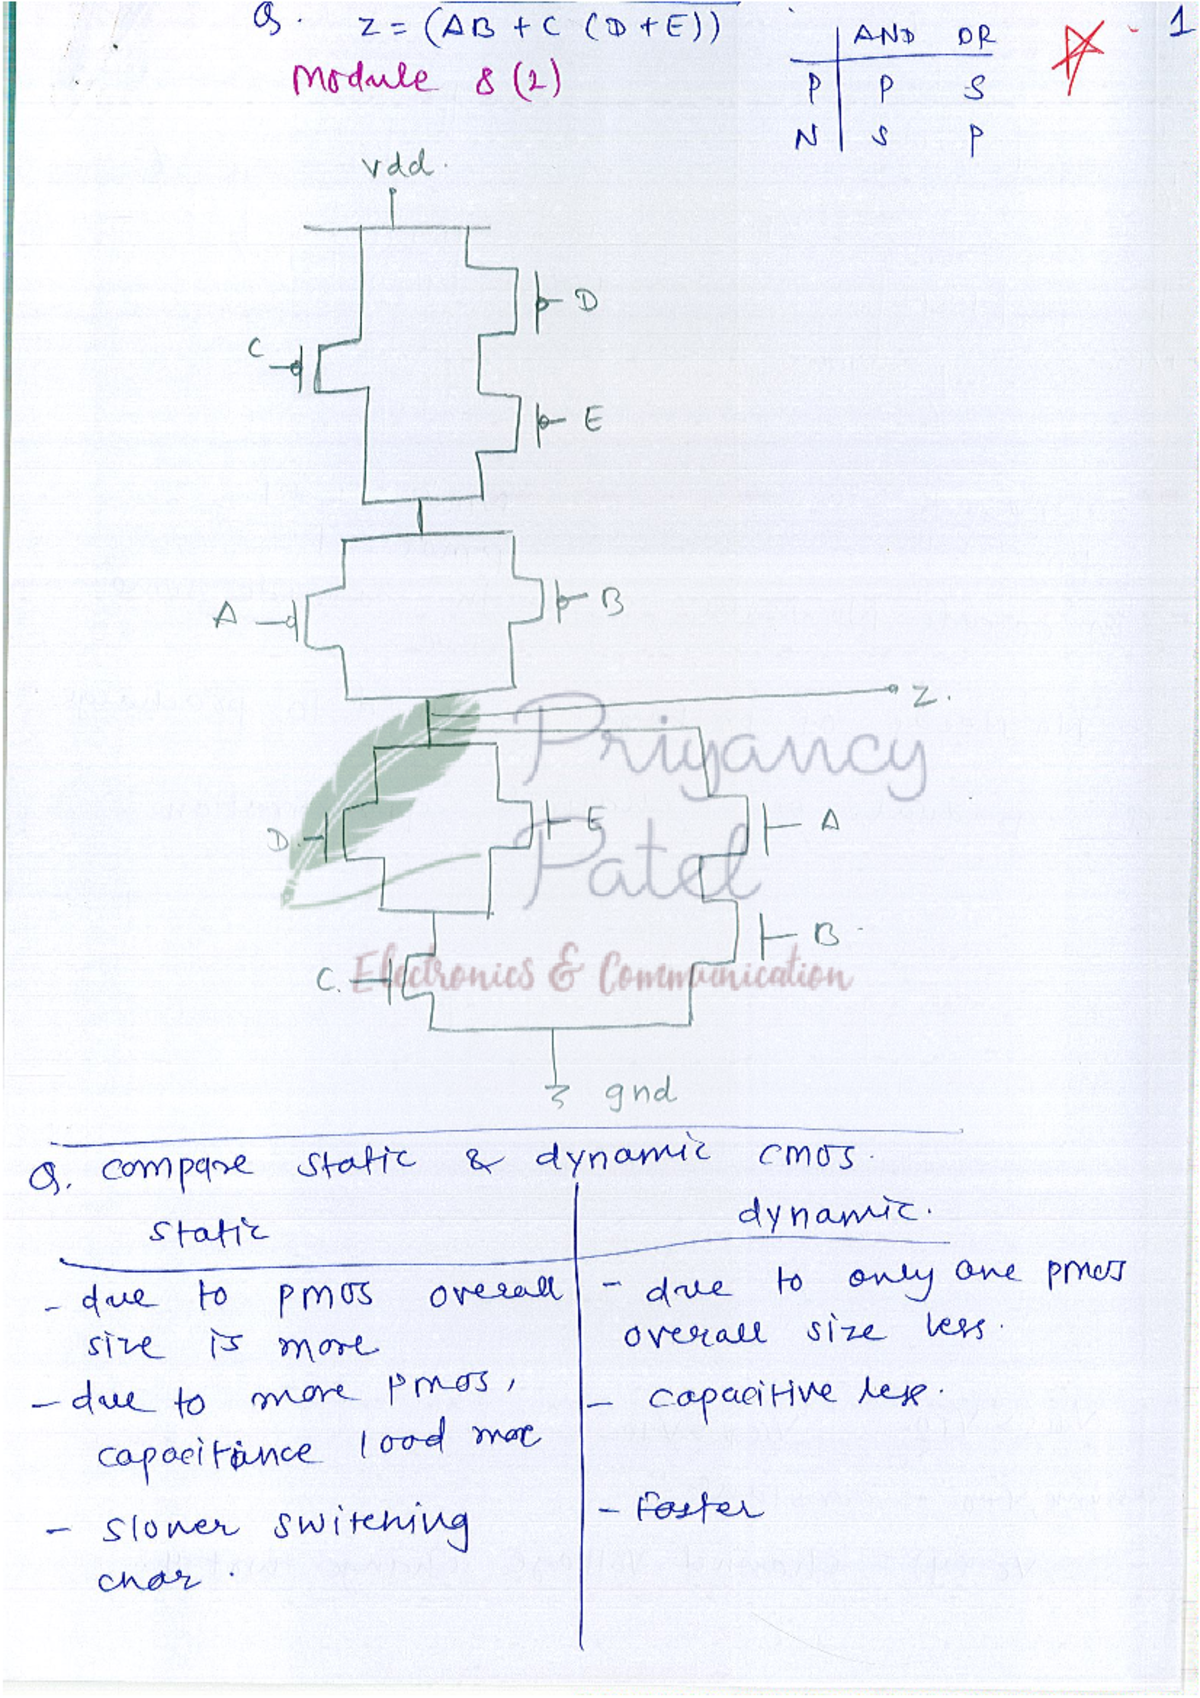 Q. Z = (AB + C (D + E))
Module 8 (2)
AND OR
P P S
N S P
- 1
Vdd.
D
C
E
A
B
Z.
Priyancy
D
E
A
Patel
B
C.
Electronics & Communication
gnd
Q. compare static & dynamic CMOS.
static
dynamic.
- due to PMOS overall
size is more
- due to more PMOS,
capacitance load more
- slower switching
char.
- due to only one pmos
overall size less.
- capacitive less.
- Faster